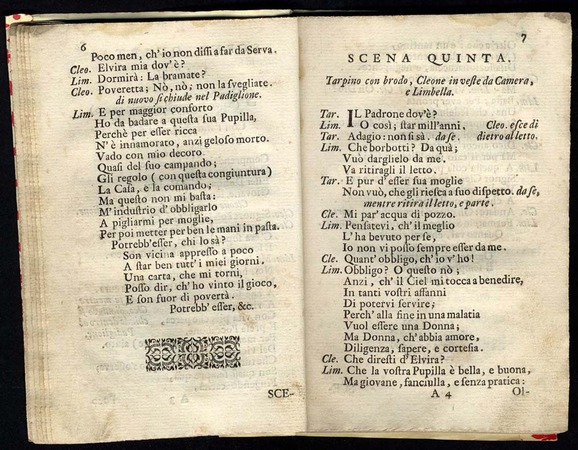 6
Poco men, ch' io non dissi a far da Serva.
Cleo. Elvira mia dov'è?
Lim. Dormirà: La bramate?
Cleo. Poveretta; Nò, nò; non la svegliate.
di nuovo si chiude nel Padiglione.
Lim. E per maggior conforto
Ho da badare a questa sua Pupilla,
Perchè per esser ricca
N' è innamorato, anzi geloso morto.
Vado con mio decoro
Quasi del suo campando;
Gli regolo (con questa congiuntura)
La Casa, e la comando;
Ma questo non mi basta:
M' industrio d' obbligarlo
A pigliarmi per moglie,
Per poi metter per ben le mani in pasta.
Potrebb'esser, chi lo sà?
Son vicina appresso a poco
A star ben tutt' i miei giorni.
Una carta, che mi torni,
Posso dir, ch' ho vinto il gioco,
E son fuor di povertà.
Potrebb' esser, &c.
SCE-
7
SCENA QUINTA.
Tarpino con brodo, Cleone in veste da Camera,
e Limbella.
Tar. IL Padrone dov'è?
Lim. O così; star mill'anni. Cleo. esce di
Tar. Adagio: non si sà. da se. dietro al letto.
Lim. Che borbotti? Da quà;
Vuò darglielo da me.
Va ritiragli il letto.
Tar. E pur d' esser sua moglie
Non vuò, che gli riesca a suo dispetto. da se,
mentre ritira il letto, e parte.
Cle. Mi par' acqua di pozzo.
Lim. Pensatevi, ch' il meglio
L' ha bevuto per se,
Io non vi posso sempre esser da me.
Cle. Quant' obbligo, ch' io v' ho!
Lim. Obbligo? O questo nò;
Anzi, ch' il Ciel mi tocca a benedire,
In tanti vostri affanni
Di potervi servire;
Perch' alla fine in una malatia
Vuol essere una Donna;
Ma Donna, ch' abbia amore,
Diligenza, sapere, e cortesia.
Cle. Che diresti d' Elvira?
Lim. Che la vostra Pupilla è bella, e buona,
Ma giovane, fanciulla, e senza pratica:
A 4 Ol-